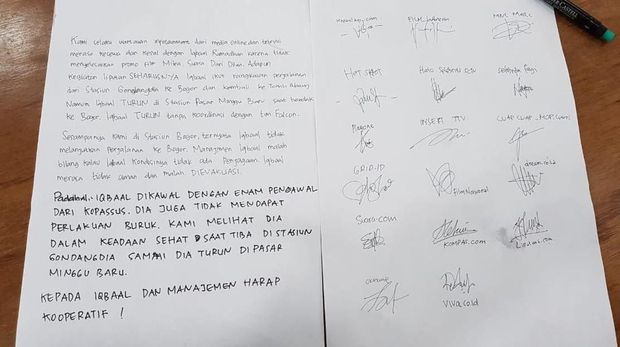 Kami selaku wartawan infotainment dari media online dan televisi
merasa kecewa dan kesal dengan Iqbaal Ramadhan karena tidak
menyelesaikan promo film Milea Suara Dari Dilan. Adapun
kegiatan liputan SEHARUSNYA Iqbaal ikut rangkaian perjalanan
dari Stasiun Gondangdia ke Bogor dan kembali ke Tanah Abang
Namun Iqbaal TURUN di Stasiun Pasar Minggu Baru saat hendak
ke Bogor. Iqbaal TURUN tanpa koordinasi dengan tim Falcon.
Sesampainya kami di Stasiun Bogor, ternyata Iqbaal tidak
melanjutkan perjalanan ke Bogor. Manajemen Iqbaal malah
bilang kalau Iqbaal kondisinya tidak ada penjagaan. Iqbaal
merasa tidak aman dan malah DIEVAKUASI.
Padahal.. IQBAAL DIKAWAL DENGAN ENAM PENGAWAL
DARI KOPASSUS. DIA JUGA TIDAK MENDAPAT
PERLAKUAN BURUK. KAMI MELIHAT DIA
DALAM KEADAAN SEHAT SAAT TIBA DI STASIUN
GONDANGDIA SAMPAI DIA TURUN DI PASAR
MINGGU BARU.
KEPADA IQBAAL DAN MANAJEMEN HARAP
KOOPERATIF !
FILM Indonesia
HOT SHOT
INSERT TTV
GRID.ID
film Nasional
dream.co.id
Suara.com
KOMPAS.com
Liputan6
okezone
VIVA.co.id